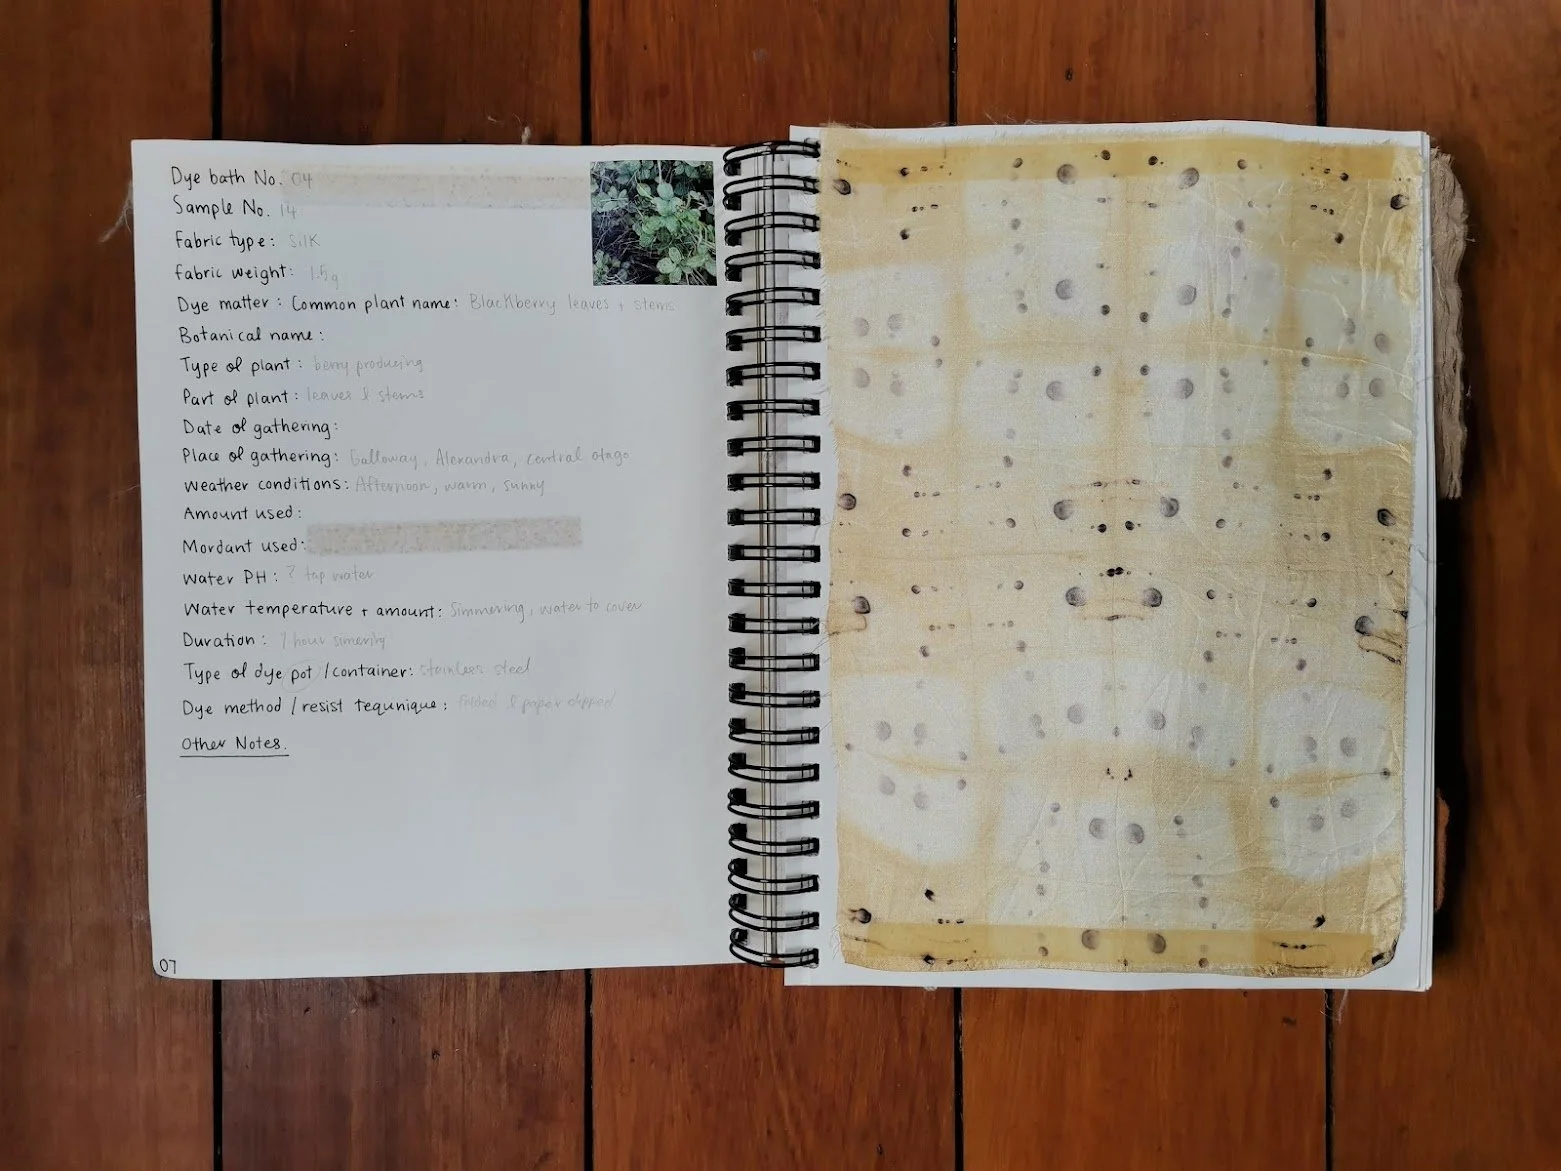 Dye bath No. 04
Sample No. 14
Fabric type: Silk
Fabric weight: 1.5g
Dye matter: Common plant name: Blackberry leaves + stems
Botanical name:
Type of plant: berry producing
Part of plant: leaves & stems
Date of gathering:
Place of gathering: Galloway, Alexandra, central otago
Weather conditions: Afternoon, warm, sunny
Amount used:
Mordant used:
Water PH: ? tap water
Water temperature + amount: Simmering, water to cover
Duration: 1 hour simering
Type of dye pot / container: stainless steel
Dye method / resist tequnique: folded & paper clipped
Other Notes.
07